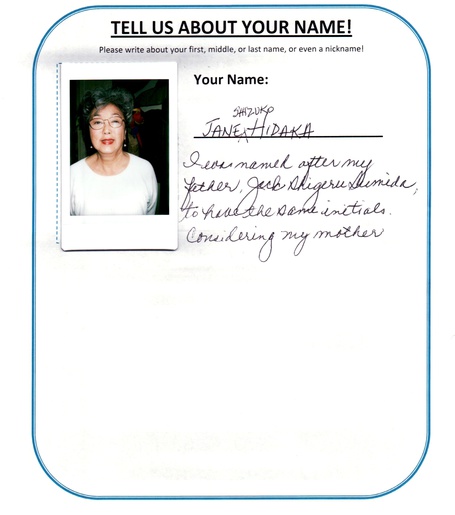 TELL US ABOUT YOUR NAME!
Please write about your first, middle, or last name, or even a nickname!
Your Name:
SHIZUKO
JANE HIDAKA
I was named after my
father, Jack Shigeru Sumida,
to have the same initials.
Considering my mother